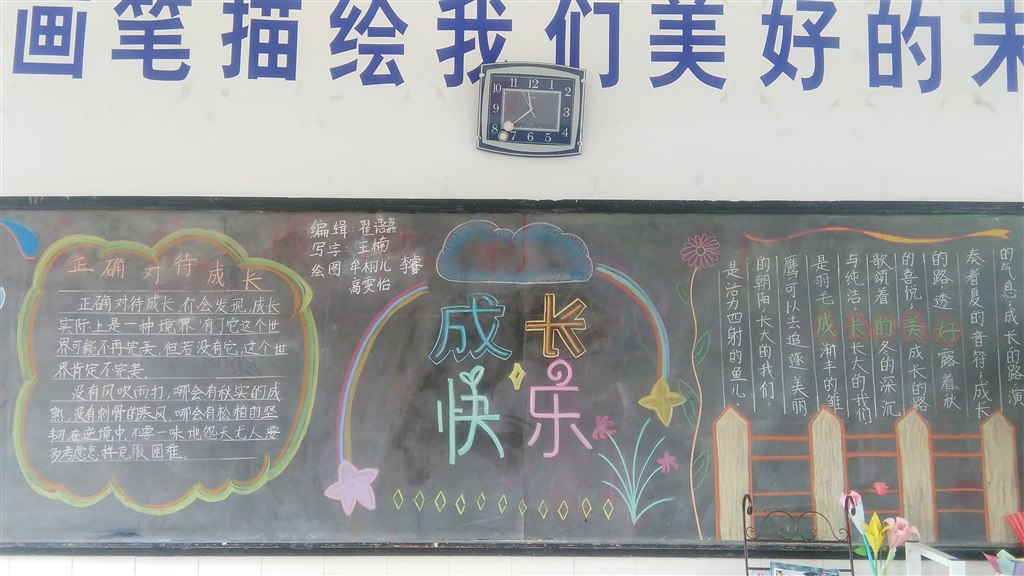 画笔描绘我们美好的未
11 12 1
10 2
3
8 4
7 6 5
正确对待成长
正确对待成长,你会发现,成长
实际上是一种境界.有了它,这个世
界可能不再完美,但若没有它,这个世
界肯定不完美
没有风吹雨打,哪会有秋实的成
熟,没有刺骨的寒风,哪会有松柏的坚
韧,在逆境中,不要一味地怨天尤人,要
多考虑怎样克服困难。
编辑:翟
写字:王楠
绘图:牟栩儿 李睿
高雯怡
成长
快乐
成长的美好
的气息,成长的路演
奏着夏的音符,成长
的路透露着秋
的喜悦,成长的路
歌颂着冬的深沉
与纯洁,长大的我们
是羽毛渐丰的雏
鹰,可以去追逐美丽
的朝阳,长大的我们
是活力四射的鱼儿